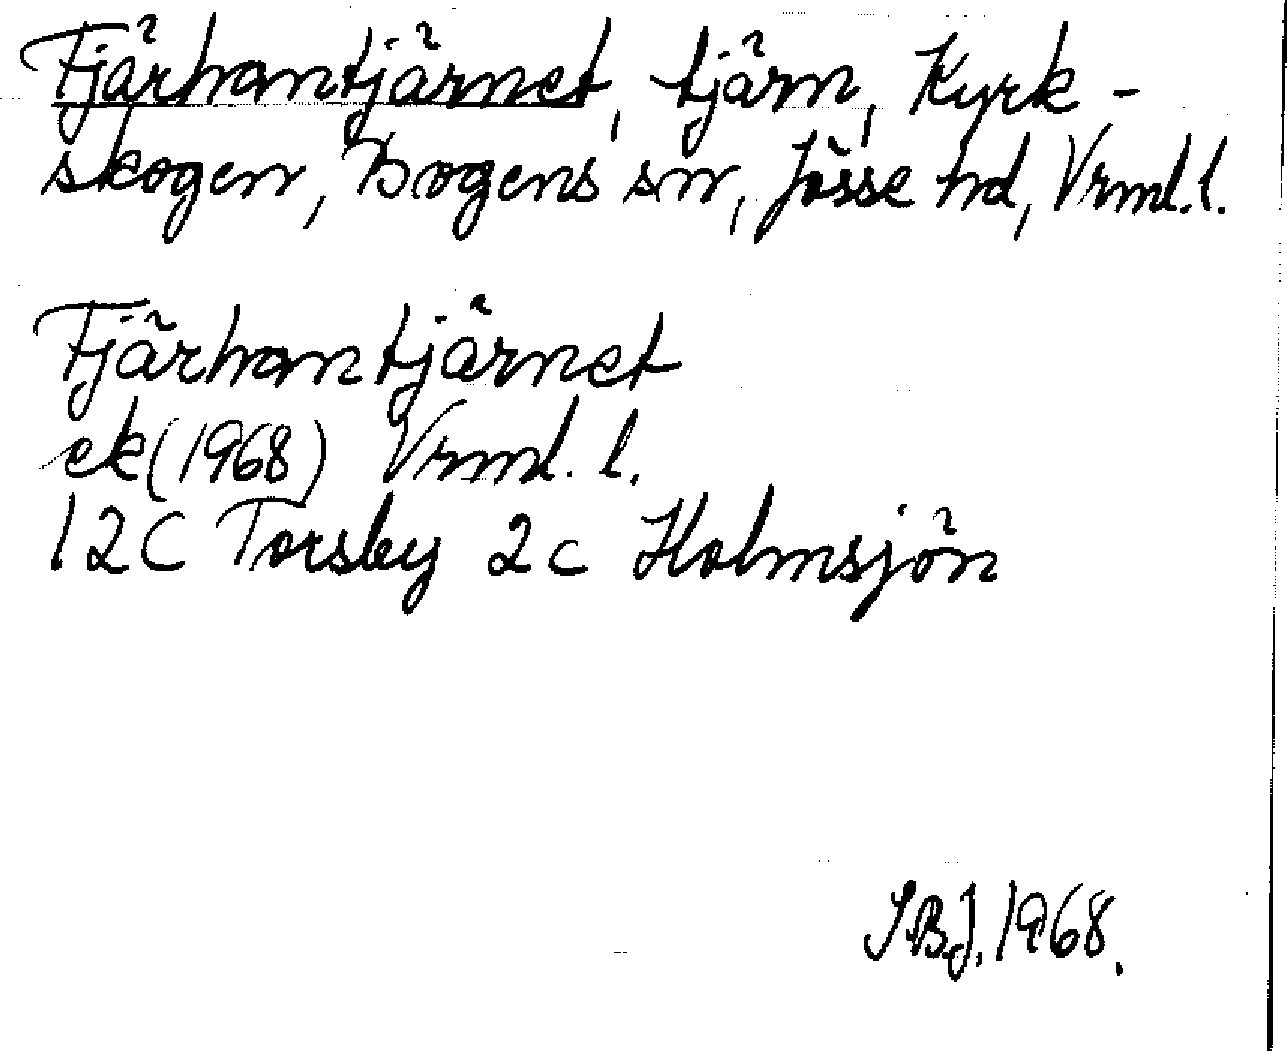 Tjärhantjärnet, tjärn, Kyrk-
skogen, Bogens sn, Jösse hd, Vrml.l.
Tjärhantjärnet
ek (1968) Vrml. l.
12C Torsby 2c Holmsjön
SBJ. 1968.